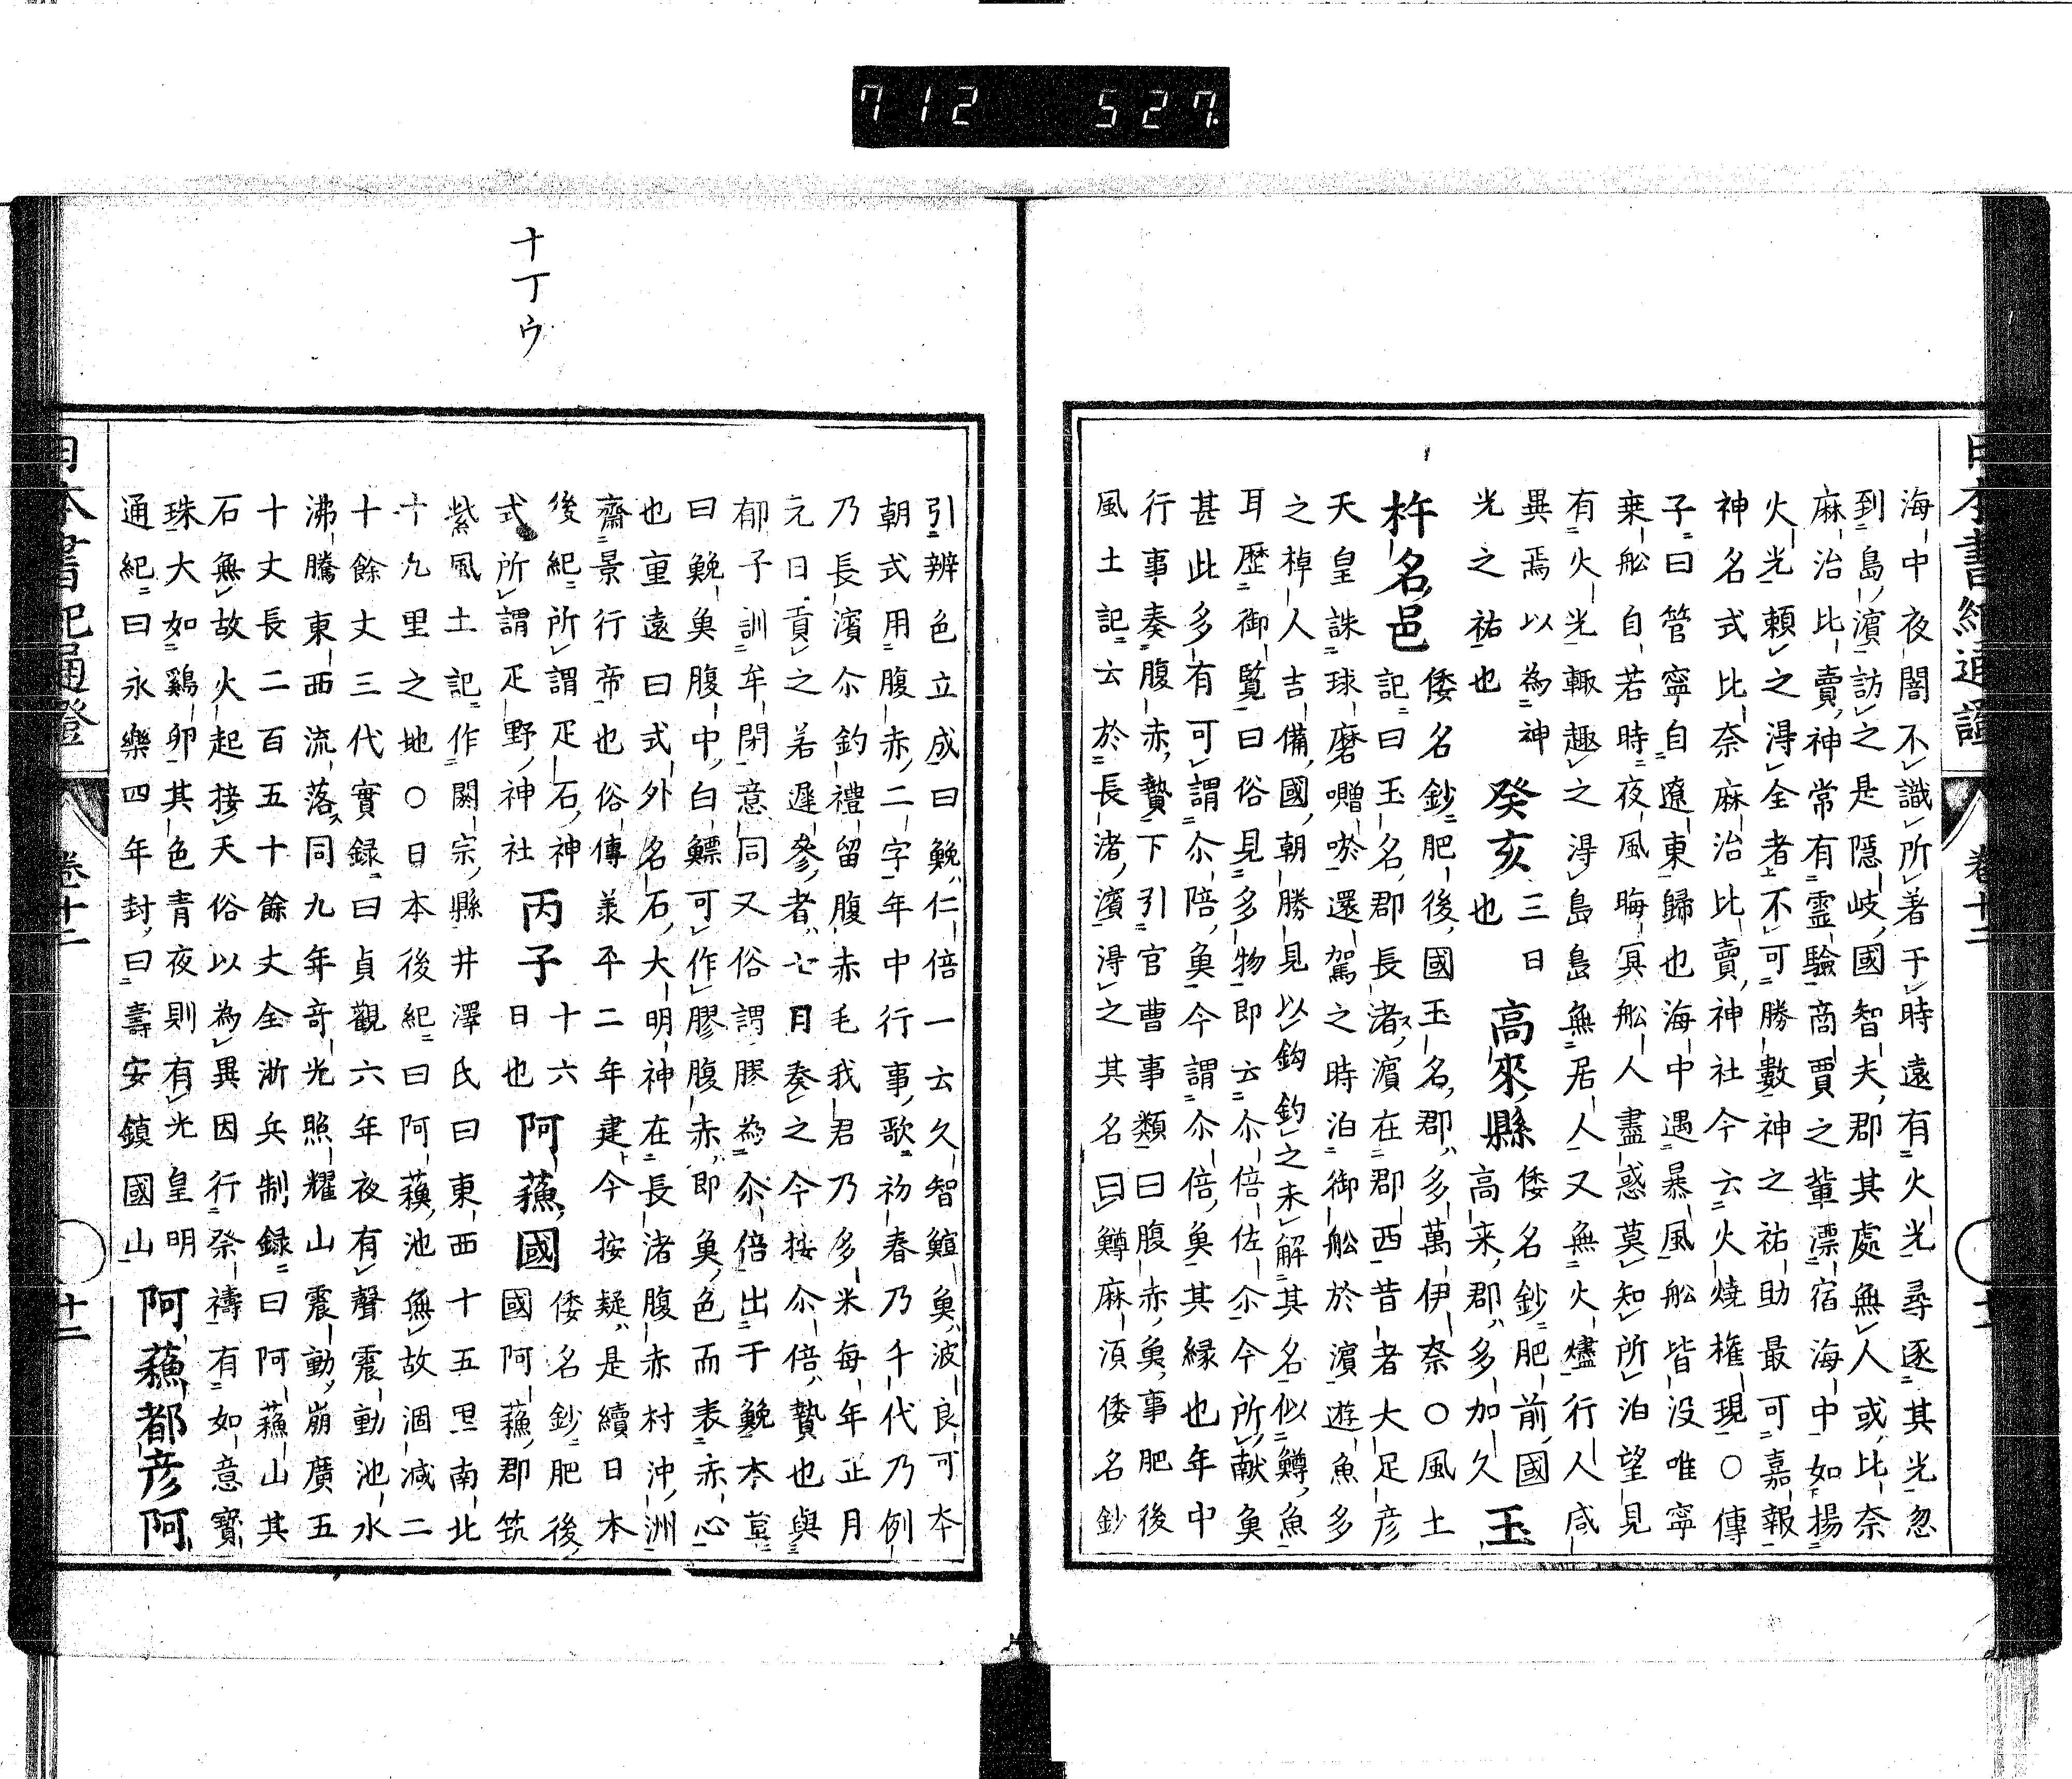 712 527.
海中夜闇不識所著于時遠有火光尋逐其光忽
到島濵訪之是隱岐國智夫郡其處無人或比奈
麻治比賣神常有霊驗商賈之輩漂宿海中如揚
火光頼之淂全者不可勝數神之祐助最可嘉報
神名式比奈麻治比賣神社今云火燒権現○傳
子曰管寧自遼東歸也海中遇暴風舩皆没唯寧
乗舩自若時夜風晦冥舩人盡惑莫知所泊望見
有火光輙趣之淂島島無居人又無火燼行人咸
異焉以為神
光之祐也
癸亥
三日
也
高來縣
倭名鈔肥前國
高来郡多加久
玉
杵名邑
倭名鈔肥後國玉名郡多萬伊奈○風土
記曰玉名郡長渚濵在郡西昔者大足彦
天皇誅球磨囎唹還駕之時泊御舩於濵遊魚多
之棹人吉備國朝勝見以鈎釣之未解其名似鱒魚
耳歴御覧曰俗見多物即云尒倍佐尒今所献魚
甚此多有可謂尒陪魚今謂尒倍魚其縁也年中
行事奏腹赤贄下引官曹事類曰腹赤魚事肥後
風土記云於長渚濵淂之其名曰鱒麻湏倭名鈔
十丁ウ
引辨色立成曰鮸仁倍一云久智䱇魚波良可本
朝式用腹赤二字年中行事歌初春乃千代乃例
乃長濵尒釣禮留腹赤毛我君乃多米每年正月
元日貢之若遲參者七月奏之今按尒倍贄也與
郁子訓牟閉意同又俗謂膠為尒倍出于鮸本草
曰鮸魚腹中白鰾可作膠腹赤即魚色而表赤心
也重遠曰式外名石大明神在長渚腹赤村沖洲
齋景行帝也俗傳羕平二年建今按疑是續日本
後紀所謂疋石神
式所謂疋野神社
丙子
十六
日也
阿蘓國
倭名鈔肥後
國阿蘓郡筑
紫風土記作閼宗縣井澤氏曰東西十五里南北
十九里之地○日本後紀曰阿蘓池無故涸減二
十餘丈三代實録曰貞觀六年夜有聲震動池水
沸騰東西流落同九年竒光照耀山震動崩廣五
十丈長二百五十餘丈全浙兵制録曰阿蘓山其
石無故火起接天俗以為異因行祭禱有如意寳
珠大如鷄卵其色青夜則有光皇明
通紀曰永樂四年封曰壽安鎮國山
阿蘓都彦阿
日本書紀通證
卷十二
十二